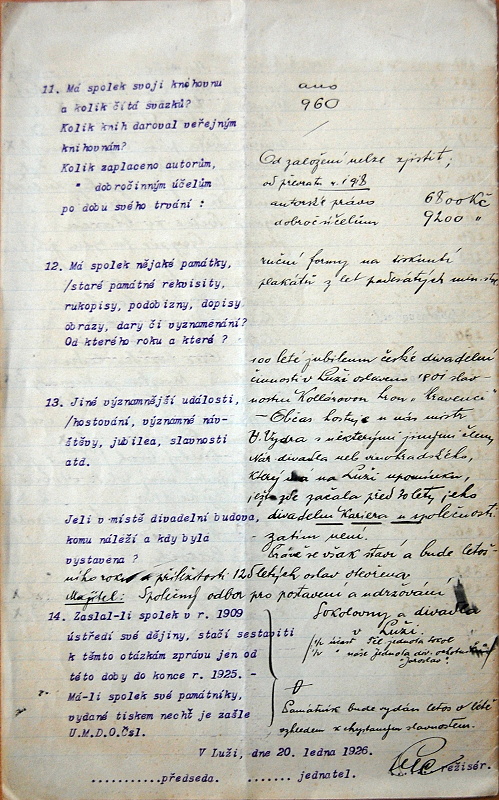 11. Má spolek svoji knihovnu
a kolik čítá svazků?
ano
960
Kolik knih daroval veřejným
knihovnám?
/
Kolik zaplaceno autorům,
" dobročinným účelům
po dobu svého trvání :
Od založení nelze zjistit;
od převratu r. 1918
autorské právo 6800 Kč
dobroč. účelům 9200 "
12. Má spolek nějaké památky,
/staré památné rekvisity,
rukopisy, podobizny, dopisy
obrazy, dary či vyznamenání?
Od kterého roku a které ?
ruční formy na tisknutí
plakátů z let padesátých min. stol.
13. Jiné významnější události,
/hostování, významné náv-
štěvy, jubilea, slavnosti
atd.
100 leté jubileum české divadelní
činnosti v Luži oslaveno 1901 slav-
nostní Kollárovou
- Občas hostuje u nás mistr
V. Vydra s některými jinými členy
Nár. divadla neb vinohradského,
který má na Luži upomínku,
že zde začala před lety jeho
divadelní Kariera u společnosti.
Jeli v místě divadelní budova,
komu náleží a kdy byla
vystavena ?
- zatím není.
Právě se však staví a bude letoš-
ního roku u příležitosti 125letých oslav otevřena
Majitel: Společný odbor pro postavení a udržování
Sokolovny a divadla
v Luži.
1/2 účast Těl. jednota Sokol
1/2 " naše jednota div. ochot.
"Jaroslav"
14. Zaslal-li spolek v r. 1909
ústředí své dějiny, stačí sestaviti
k těmto otázkám zprávu jen od
této doby do konce r. 1925. -
Má-li spolek své památníky,
vydané tiskem nechť je zašle
U.M.D.O.Čsl.
Památník bude vydán letos v létě
vzhledem k chystaným slavnostem.
V Luži, dne 20. ledna 1926.
............předseda. ........ jednatel. režisér.